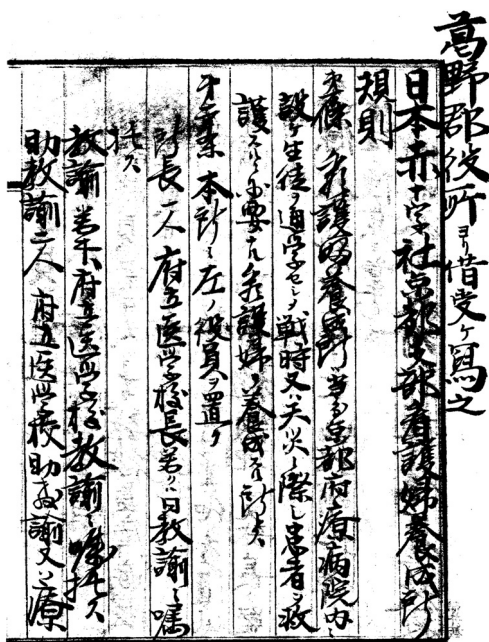 葛野郡役所ヨリ借受ケ寫之
日本赤十字社京都支部看護婦養成所
規則
看護婦養成所ハ京都府療病院内ニ
設ケ生徒ヲ通学セシメ戦時又ハ天災ノ際シ患者ヲ救
護スルニ必要ナル看護婦ヲ養成スル所トス
本所ニ左ノ役員ヲ置ク
所長一人 府立医学校長若クハ同教諭ニ嘱
托ス
教諭若干人 府立医学校教諭ニ嘱托ス
助教諭二人 府立医学校助教諭又ハ療